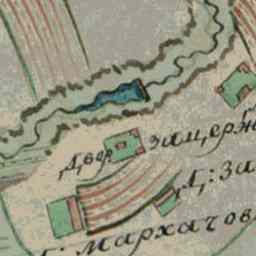 Двор Зацерк
Д: За
Г: Мархачов